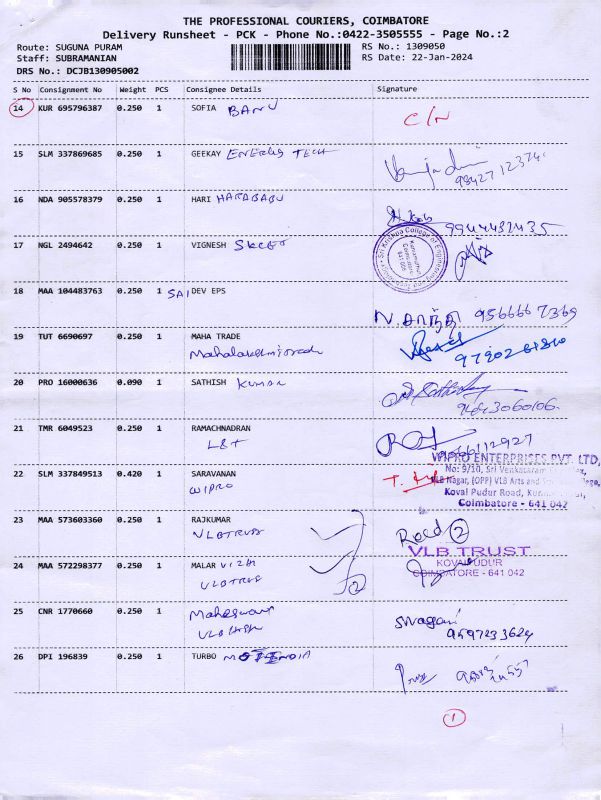 THE PROFESSIONAL COURIERS, COIMBATORE
Delivery Runsheet - PCK - Phone No.:0422-3505555 - Page No.:2
Route: SUGUNA PURAM RS No.: 1309050
Staff: SUBRAMANIAN RS Date: 22-Jan-2024
DRS No.: DCJB130905002
S No Consignment No Weight PCS Consignee Details Signature
14 KUR 695796387 0.250 1 SOFIA BANU C/N
15 SLM 337869685 0.250 1 GEEKAY ENERGY TECH
16 NDA 905578379 0.250 1 HARI HARABABU
9944432435
17 NGL 2494642 0.250 1 VIGNESH SKCET
Sri Krishna College of Engineering
18 MAA 104483763 0.250 1 SAI DEV EPS
N. 956666 7369
19 TUT 6690697 0.250 1 MAHA TRADE
Mahalakshmi
20 PRO 16000636 0.090 1 SATHISH KUMAR
9643060106
21 TMR 6049523 0.250 1 RAMACHNADRAN
L&T
WIPRO ENTERPRISES PVT. LTD,
22 SLM 337849513 0.420 1 SARAVANAN
WIPRO
No: 9/10, Sri Venkataram
VLB Nagar, (OPP) VLB Arts and
Kovai Pudur Road,
Coimbatore - 641 042
23 MAA 573603360 0.250 1 RAJKUMAR
VLBTRUST
Recd 2
VLB TRUST
24 MAA 572298377 0.250 1 MALAR VIZHI
KOVAIPUDUR
COIMBATORE - 641 042
VLBTRUST
2
25 CNR 1770660 0.250 1 Maheswari
VLB
9597233624
26 DPI 196839 0.250 1 TURBO
1